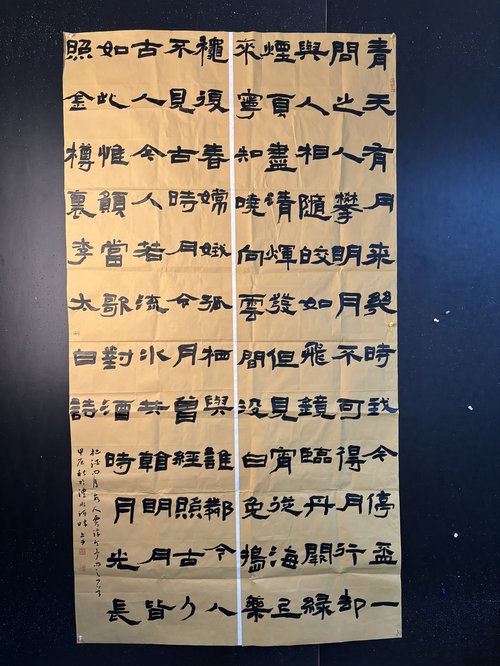 青天有月来幾時我今停盃一
問之人攀明月不可得月行却
與人相隨皎如飛鏡臨丹闕緑
煙盡清輝發但見宵從海上
來寧知曉向雲間没白兔搗藥
穐復春嫦娥孤栖與誰鄰今人
不見古時月今月曾經照古人
古人今人若流水共明月皆
如此惟願當歌對酒時月光長
照金樽裏李太白詩
把酒问月
甲辰秋於